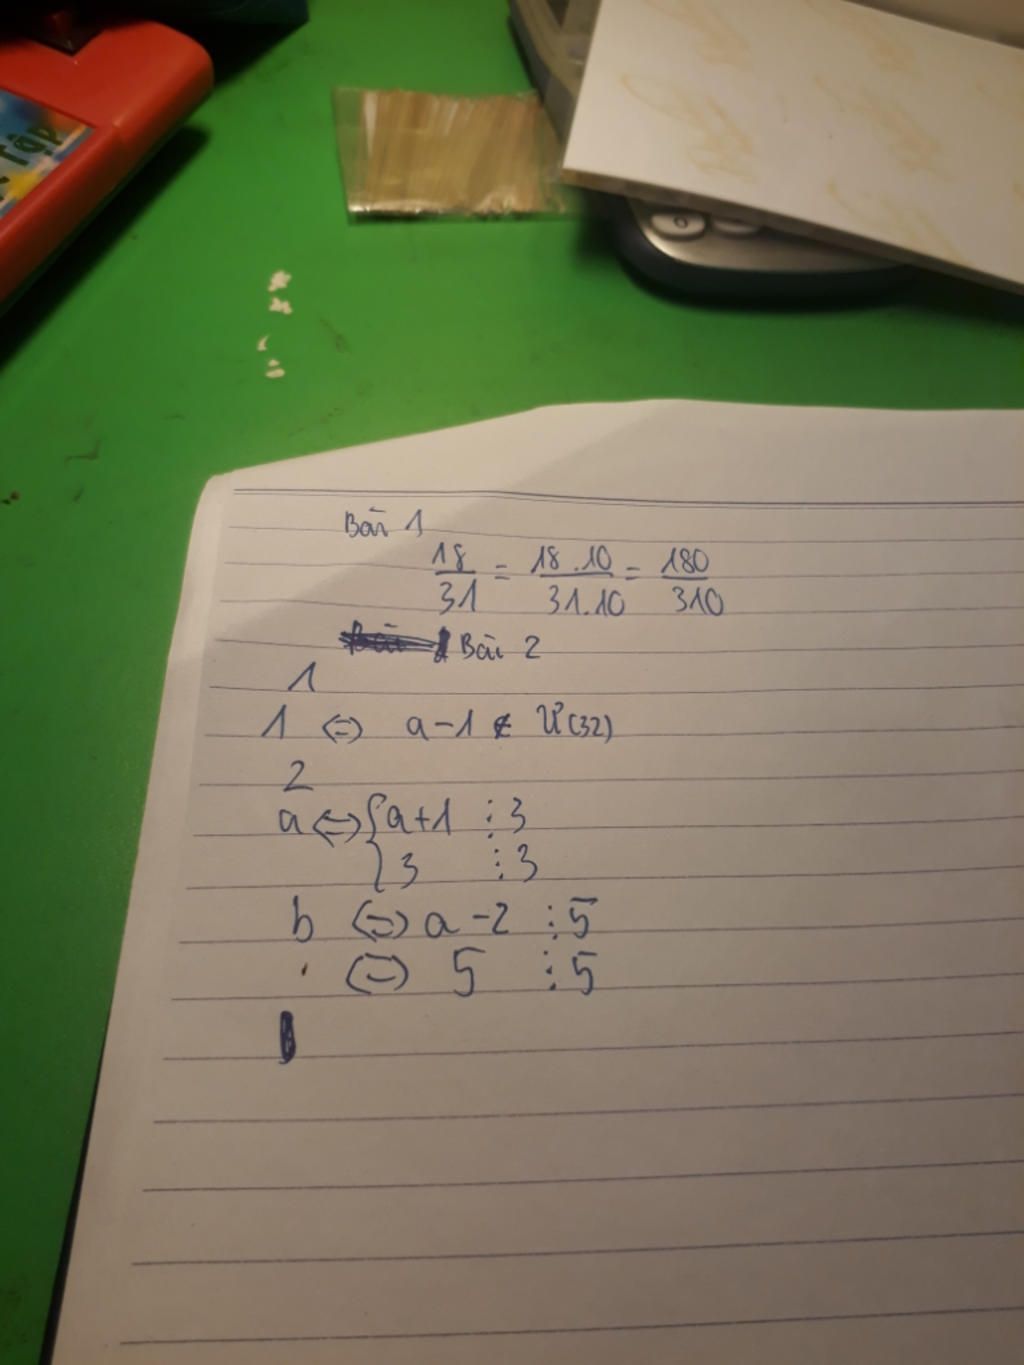 TOP
Bài 1
18/31 = 18.10/31.10 = 180/310
Bài 2
1
1 <=> a-1 ∈ Ư(32)
2
a <=> { a+1 ⋮ 3
{ 3 ⋮ 3
b <=> a-2 ⋮ 5
<=> 5 ⋮ 5